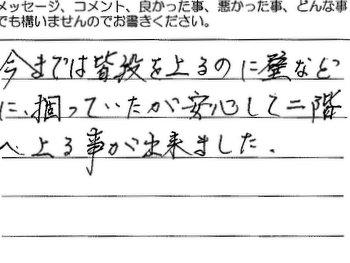 メッセージ、コメント、良かった事、悪かった事、どんな事
でも構いませんのでお書きください。
今までは皆段を上るのに壁などに
に、掴っていたが安心して二階
へ上る事が出来ました。